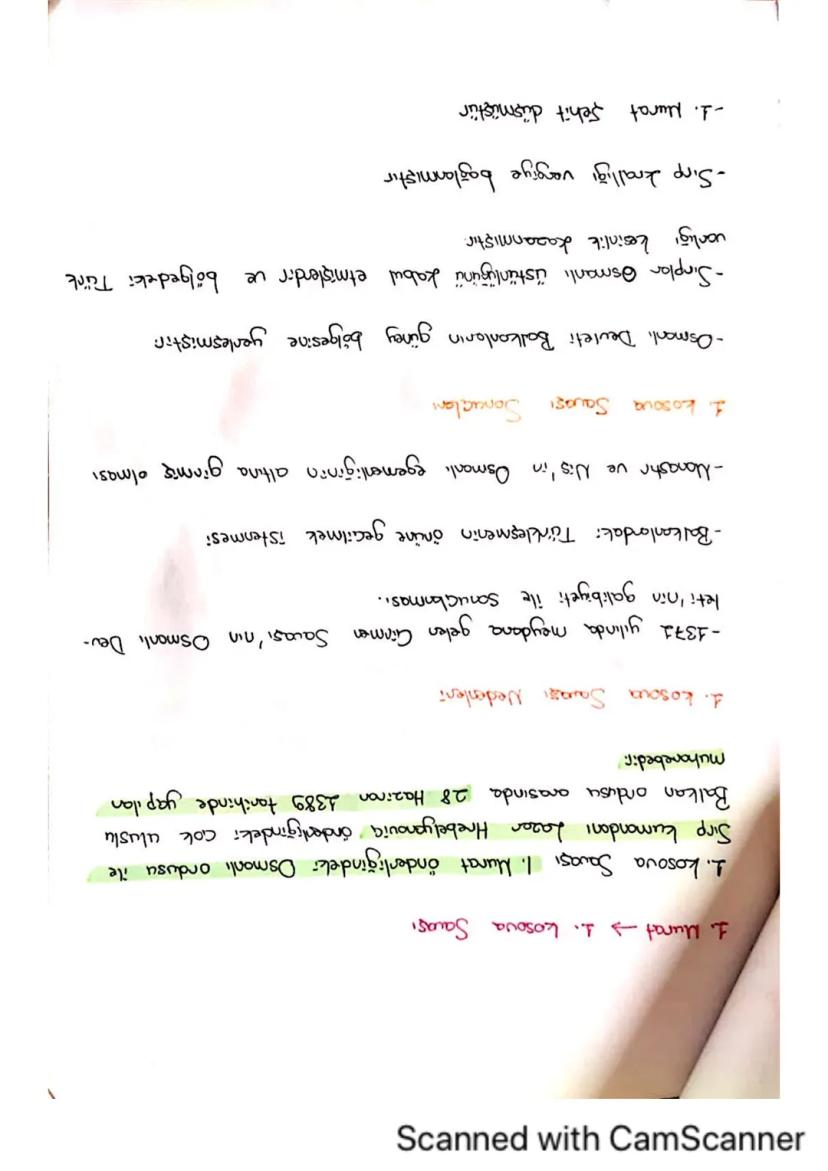 1. Murat → 1. Kosova Savaşı
1. Kosova Savaşı 1. Murat önderliğindeki Osmanlı ordusu ile
Sırp kumandanı Lazar Hrebelyanoviç önderliğindeki çok uluslu
Balkan ordusu arasında 28 Haziran 1389 tarihinde yapılan
muharebedir.
1. Kosova Savaşı Nedenleri
-1371 yılında meydana gelen Çirmen Savaşı'nın Osmanlı Dev-
leti'nin galibiyeti ile sonuçlanması.
-Balkanlardaki Türkleşmenin önüne geçilmek istenmesi
-Manastır ve Niş'in Osmanlı egemenliğinin altına girmiş olması
1. Kosova Savaşı Sonuçları
-Osmanlı Devleti Balkanların güney bölgesine yerleşmiştir.
-Sırplar Osmanlı üstünlüğünü kabul etmişlerdir ve bölgedeki Türk
varlığı kesinlik kazanmıştır.
-Sırp krallığı vergiye bağlanmıştır
-1. Murat Şehit düşmüştür
Scanned with CamScanner